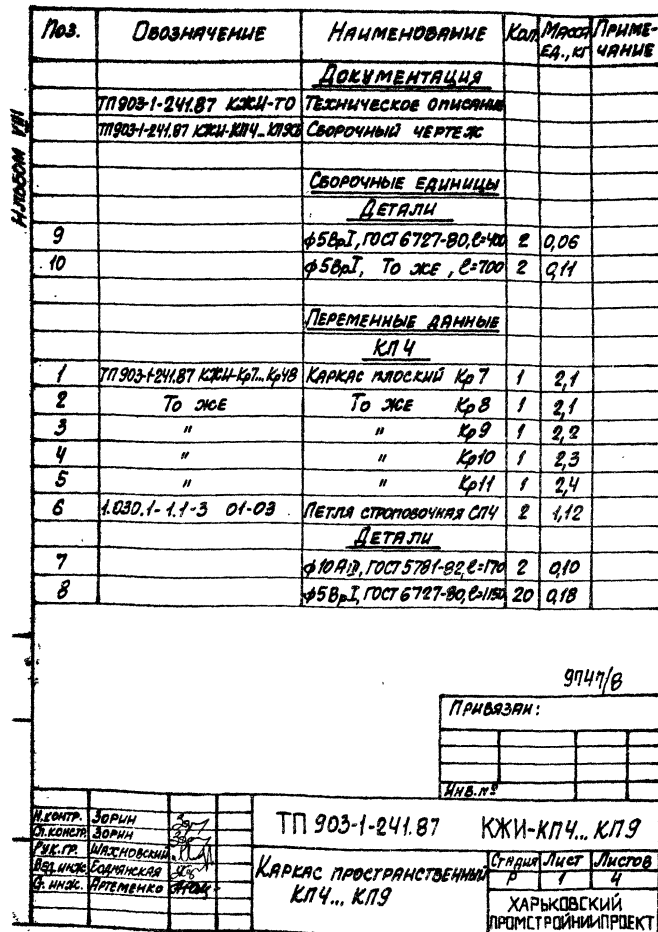 Поз. Обозначение Наименование Кол. Масса ед., кг Примечание
Документация
ТП 903-1-241.87 КЖИ-ТО Техническое описание
ТП 903-1-241.87 КЖИ-КП4...КП9СБ Сборочный чертеж
Сборочные единицы
Детали
9 ф5ВрI, ГОСТ 6727-80, ℓ=400 2 0,06
10 ф5ВрI, То же, ℓ=700 2 0,11
Переменные данные
КП 4
1 ТП 903-1-241.87 КЖИ-Кр7...Кр48 Каркас плоский Кр 7 1 2,1
2 То же То же Кр 8 1 2,1
3 " " Кр 9 1 2,2
4 " " Кр10 1 2,3
5 " " Кр11 1 2,4
6 1.030.1-1.1-3 01-03 Петля строповочная СП4 2 1,12
Детали
7 ф10АIII, ГОСТ 5781-82, ℓ=170 2 0,10
8 ф5ВрI, ГОСТ 6727-80, ℓ=1150 20 0,18
Альбом VIII
9747/8
Привязан:
Инв. №
Н.контр. Зорин
Гл.констр. Зорин
Рук.гр. Шахновский
Вед.инж. Боднянская
Ст. инж. Артеменко
ТП 903-1-241.87 КЖИ-КП4... КП9
Каркас пространственный
КП4... КП9
Стадия Лист Листов
Р 1 4
ХАРЬКОВСКИЙ
ПРОМСТРОЙНИИПРОЕКТ